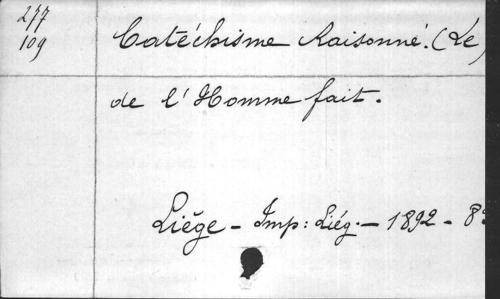 277
109
Catéchisme Raisonné. (Le)
de l'Homme fait.
Liége - Imp: Liég. - 1892 - 8º